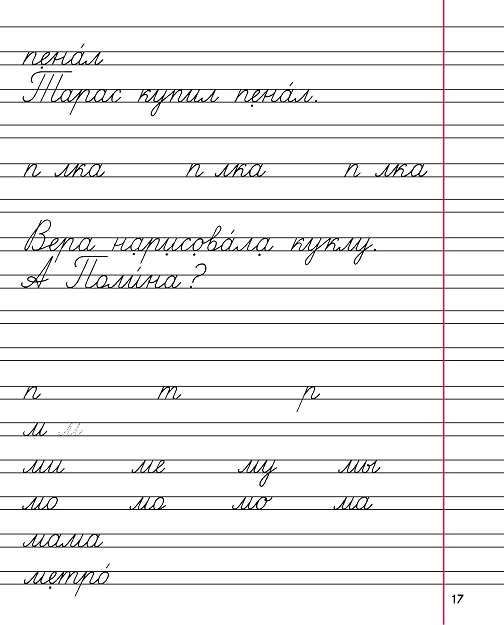 пена́л
Тарас купил пена́л.
п лка п лка п лка
Вера нарисова́ла куклу.
А Поли́на?
п т р
м м
ми ме му мы
мо мо мо ма
мама
метро́
17